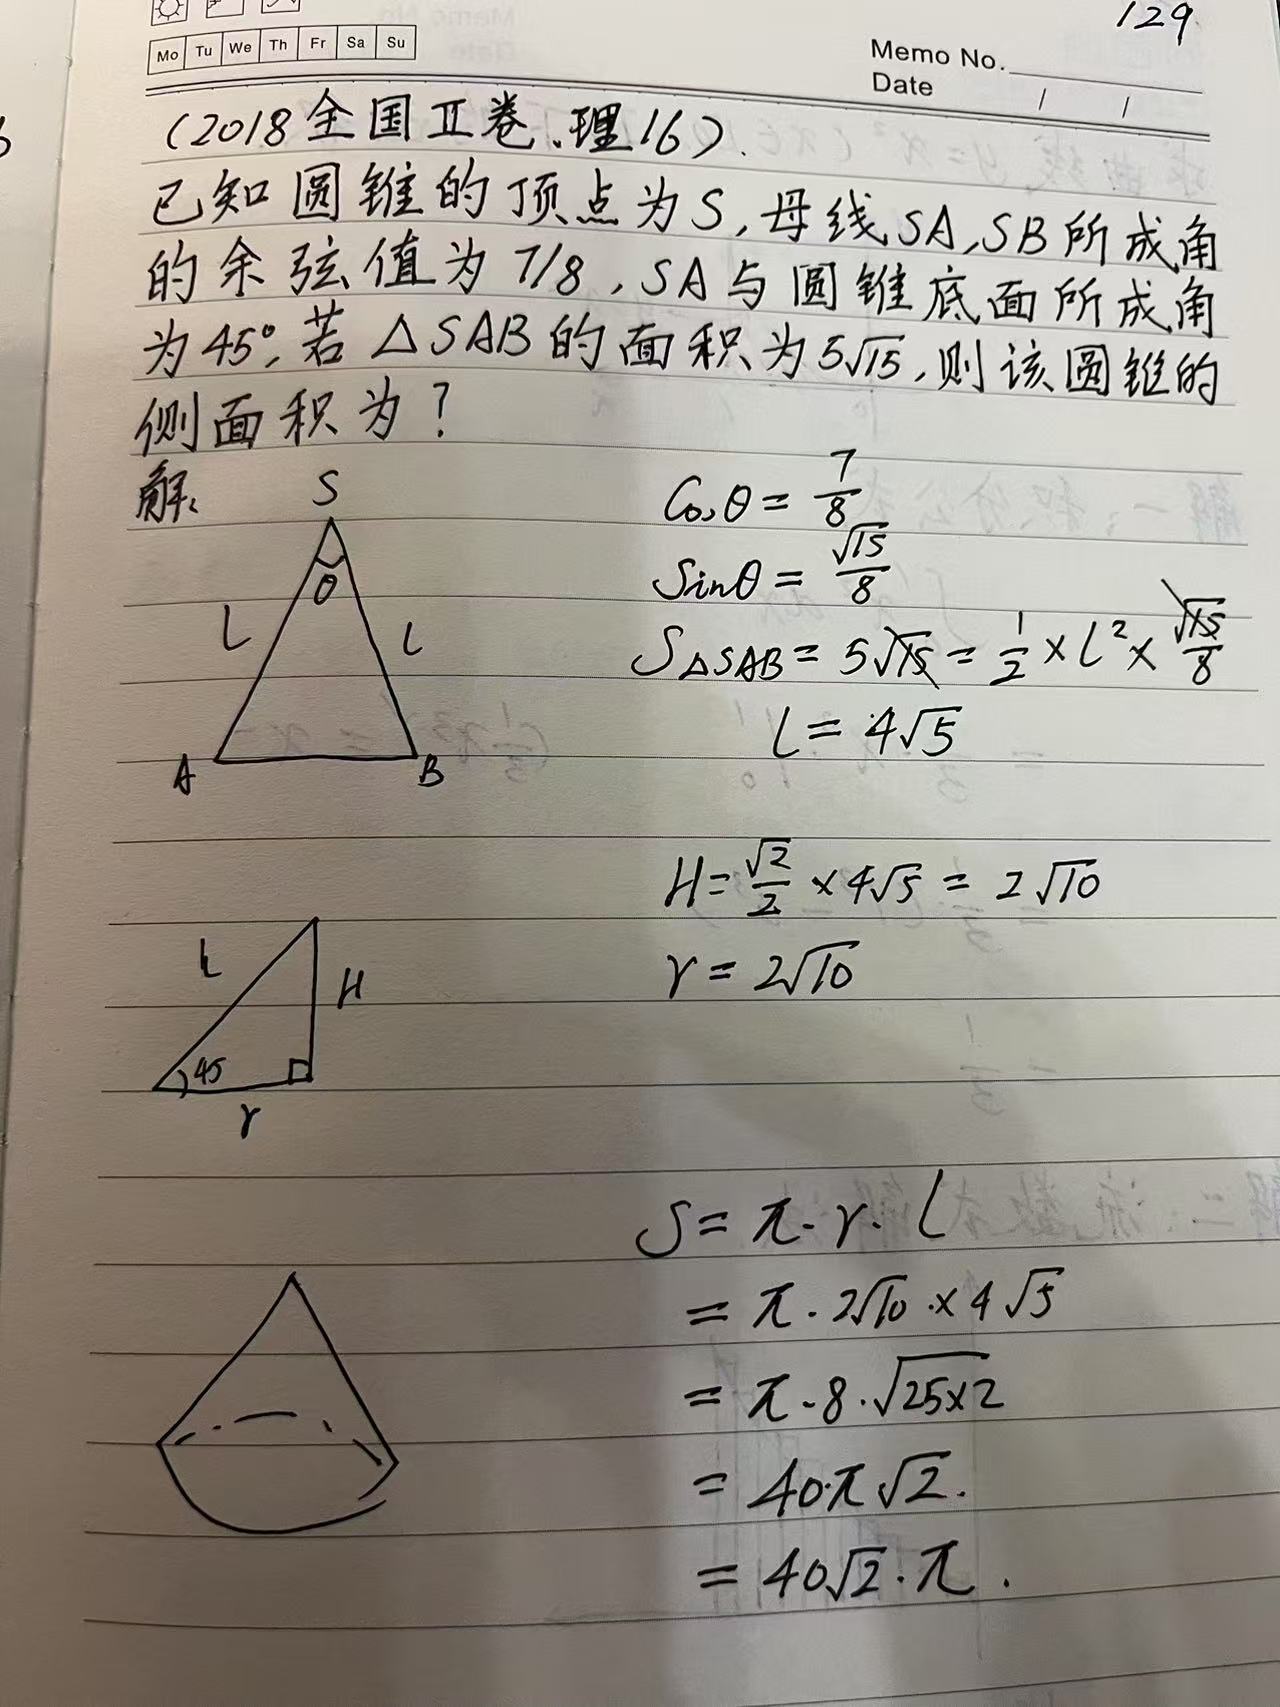 129
Mo Tu We Th Fr Sa Su
Memo No.
Date / /
(2018全国Ⅱ卷.理16).
已知圆锥的顶点为S,母线SA,SB所成角
的余弦值为7/8,SA与圆锥底面所成角
为45°,若△SAB的面积为5√15,则该圆锥的
侧面积为?
解:
S
θ
l
l
A
B
Cosθ = 7/8
Sinθ = √15/8
S△SAB = 5√15 = 1/2 × l² × √15/8
l = 4√5
L
H
45
r
H = √2/2 × 4√5 = 2√10
r = 2√10
S = π · r · l
= π · 2√10 · × 4√5
= π · 8 · √25×2
= 40·π√2.
= 40√2 · π.